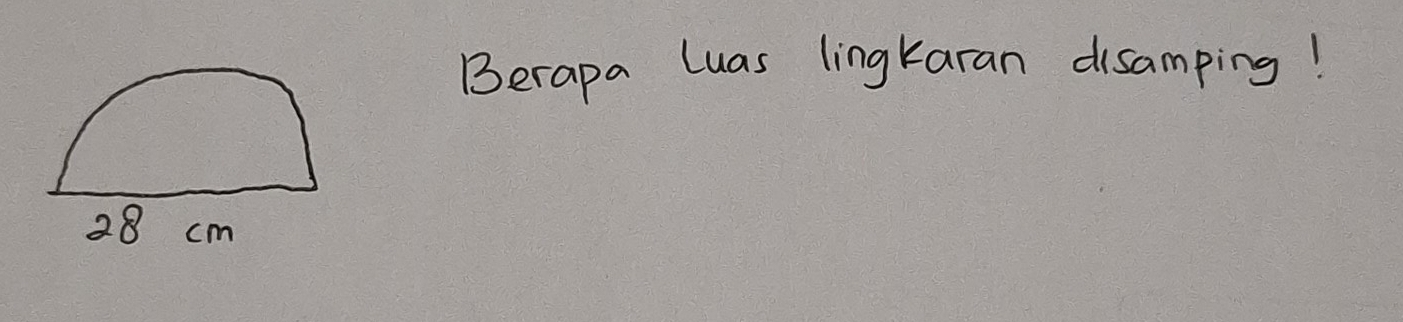 Berapa Luas lingkaran disamping !
28 cm